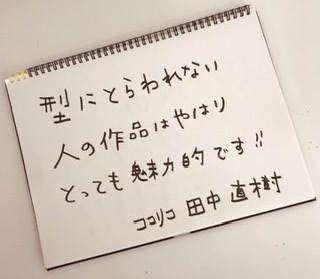 型にとらわれない
人の作品はやはり
とっても魅力的です!!
ココリコ 田中 直樹